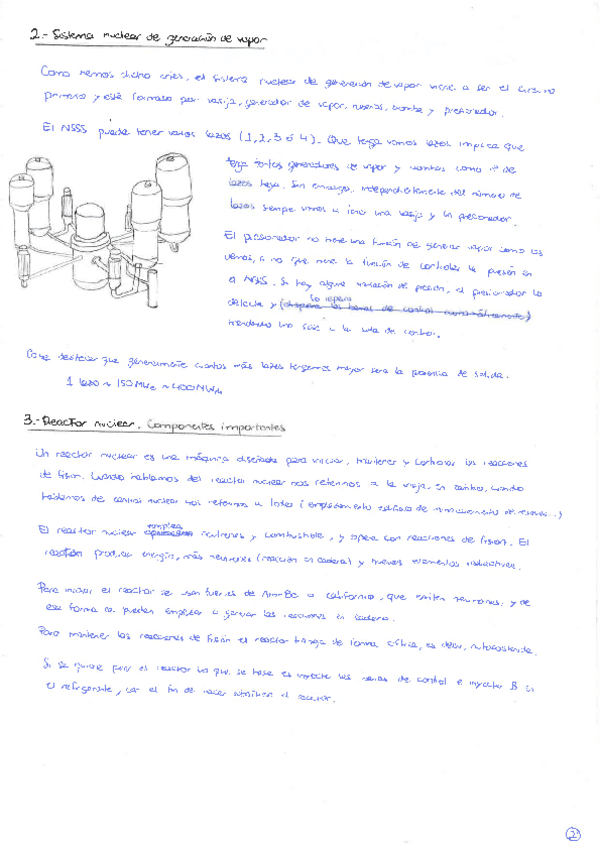 2.- Sistema nuclear de generación de vapor
Como hemos dicho antes, el sistema nuclear de generación de vapor viene a ser el circuito
primario y está formado por vasija, generador de vapor, bomba y presionador.
El NSSS puede tener varios lazos (1, 2, 3 ó 4). Que tenga varios lazos implica que
tenga tantos generadores de vapor y bombas como nº de
lazos haya. Sin embargo, independientemente del número de
lazos siempre vamos a tener una vasija y un presionador.
El presionador no tiene una función de generar vapor como los
demás, si no que tiene la función de controlar la presión en
el NSSS. Si hay alguna variación de presión, el presionador lo
detecta y lo repara
mandando una señal a la sala de control.
Cabe destacar que generalmente cuantos más lazos tengamos mayor será la potencia de salida.
1 lazo ~ 150 MWe ~ 400 MWth
3.- Reactor nuclear. Componentes importantes
Un reactor nuclear es una máquina diseñada para iniciar, mantener y controlar las reacciones
de fisión. Cuando hablamos del reactor nuclear nos referimos a la vasija, en cambio, cuando
hablamos de central nuclear nos referimos a todo (emplazamiento, edificio de almacenamiento de residuos...)
El reactor nuclear emplea neutrones y combustible, y opera con reacciones de fisión. El
reactor produce energía, más neutrones (reacción en cadena) y nuevos elementos radiactivos.
Para iniciar el reactor se usan fuentes de Am-Be o californio, que emiten neutrones, y de
esa forma pueden empezar a generar las reacciones en cadena.
Para mantener las reacciones de fisión el reactor trabaja de forma crítica, es decir, autosostenida.
Si se quiere parar el reactor lo que se hace es insertar las barras de control e inyectar B en
el refrigerante, con el fin de hacer subcrítico el reactor.
2